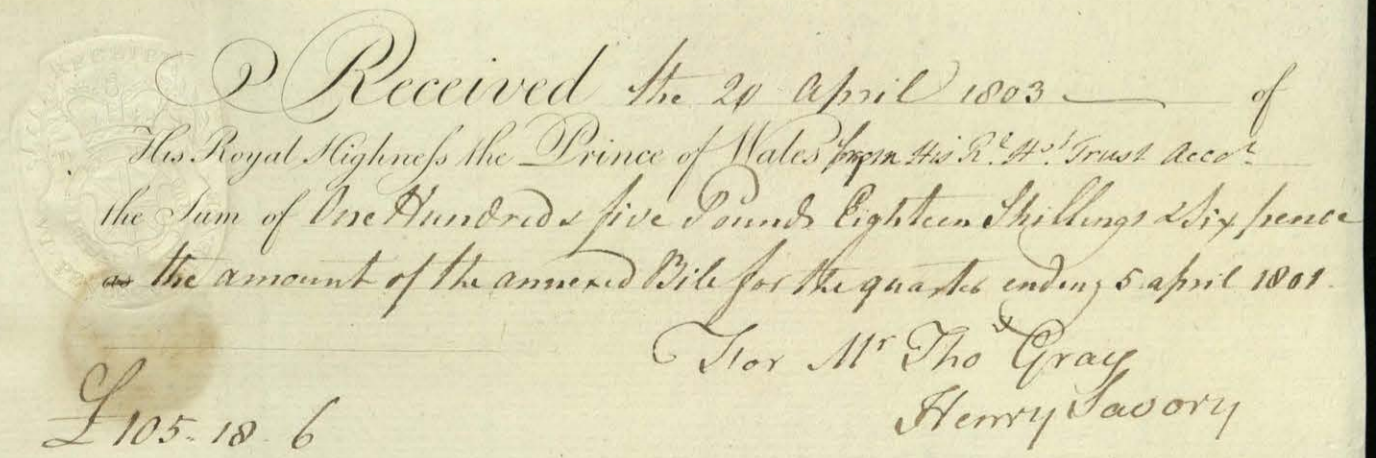 Received the 20 April 1803 of
His Royal Highneſs the Prince of Wales from His Rl. Hs. Trust Accot.
the Sum of One Hundred & five Pounds Eighteen Shillings & Six pence
the amount of the annexed Bile for the quarter ending 5 april 1801.
For Mr Thos Gray
Henry Savory
£105-18-6